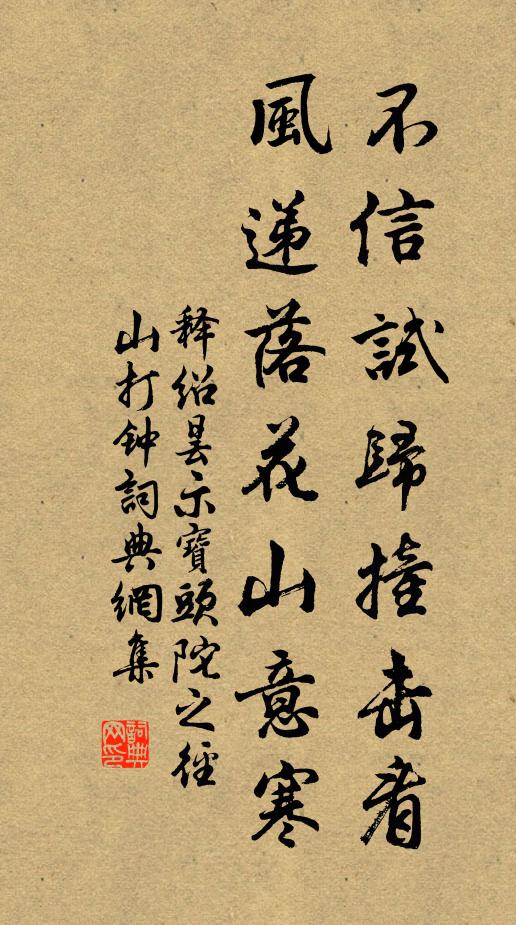 不信試歸撞击看
風递落花山意寒
释绍昙示寶頭陀之徑
山打钟詞典網集
詞典网印